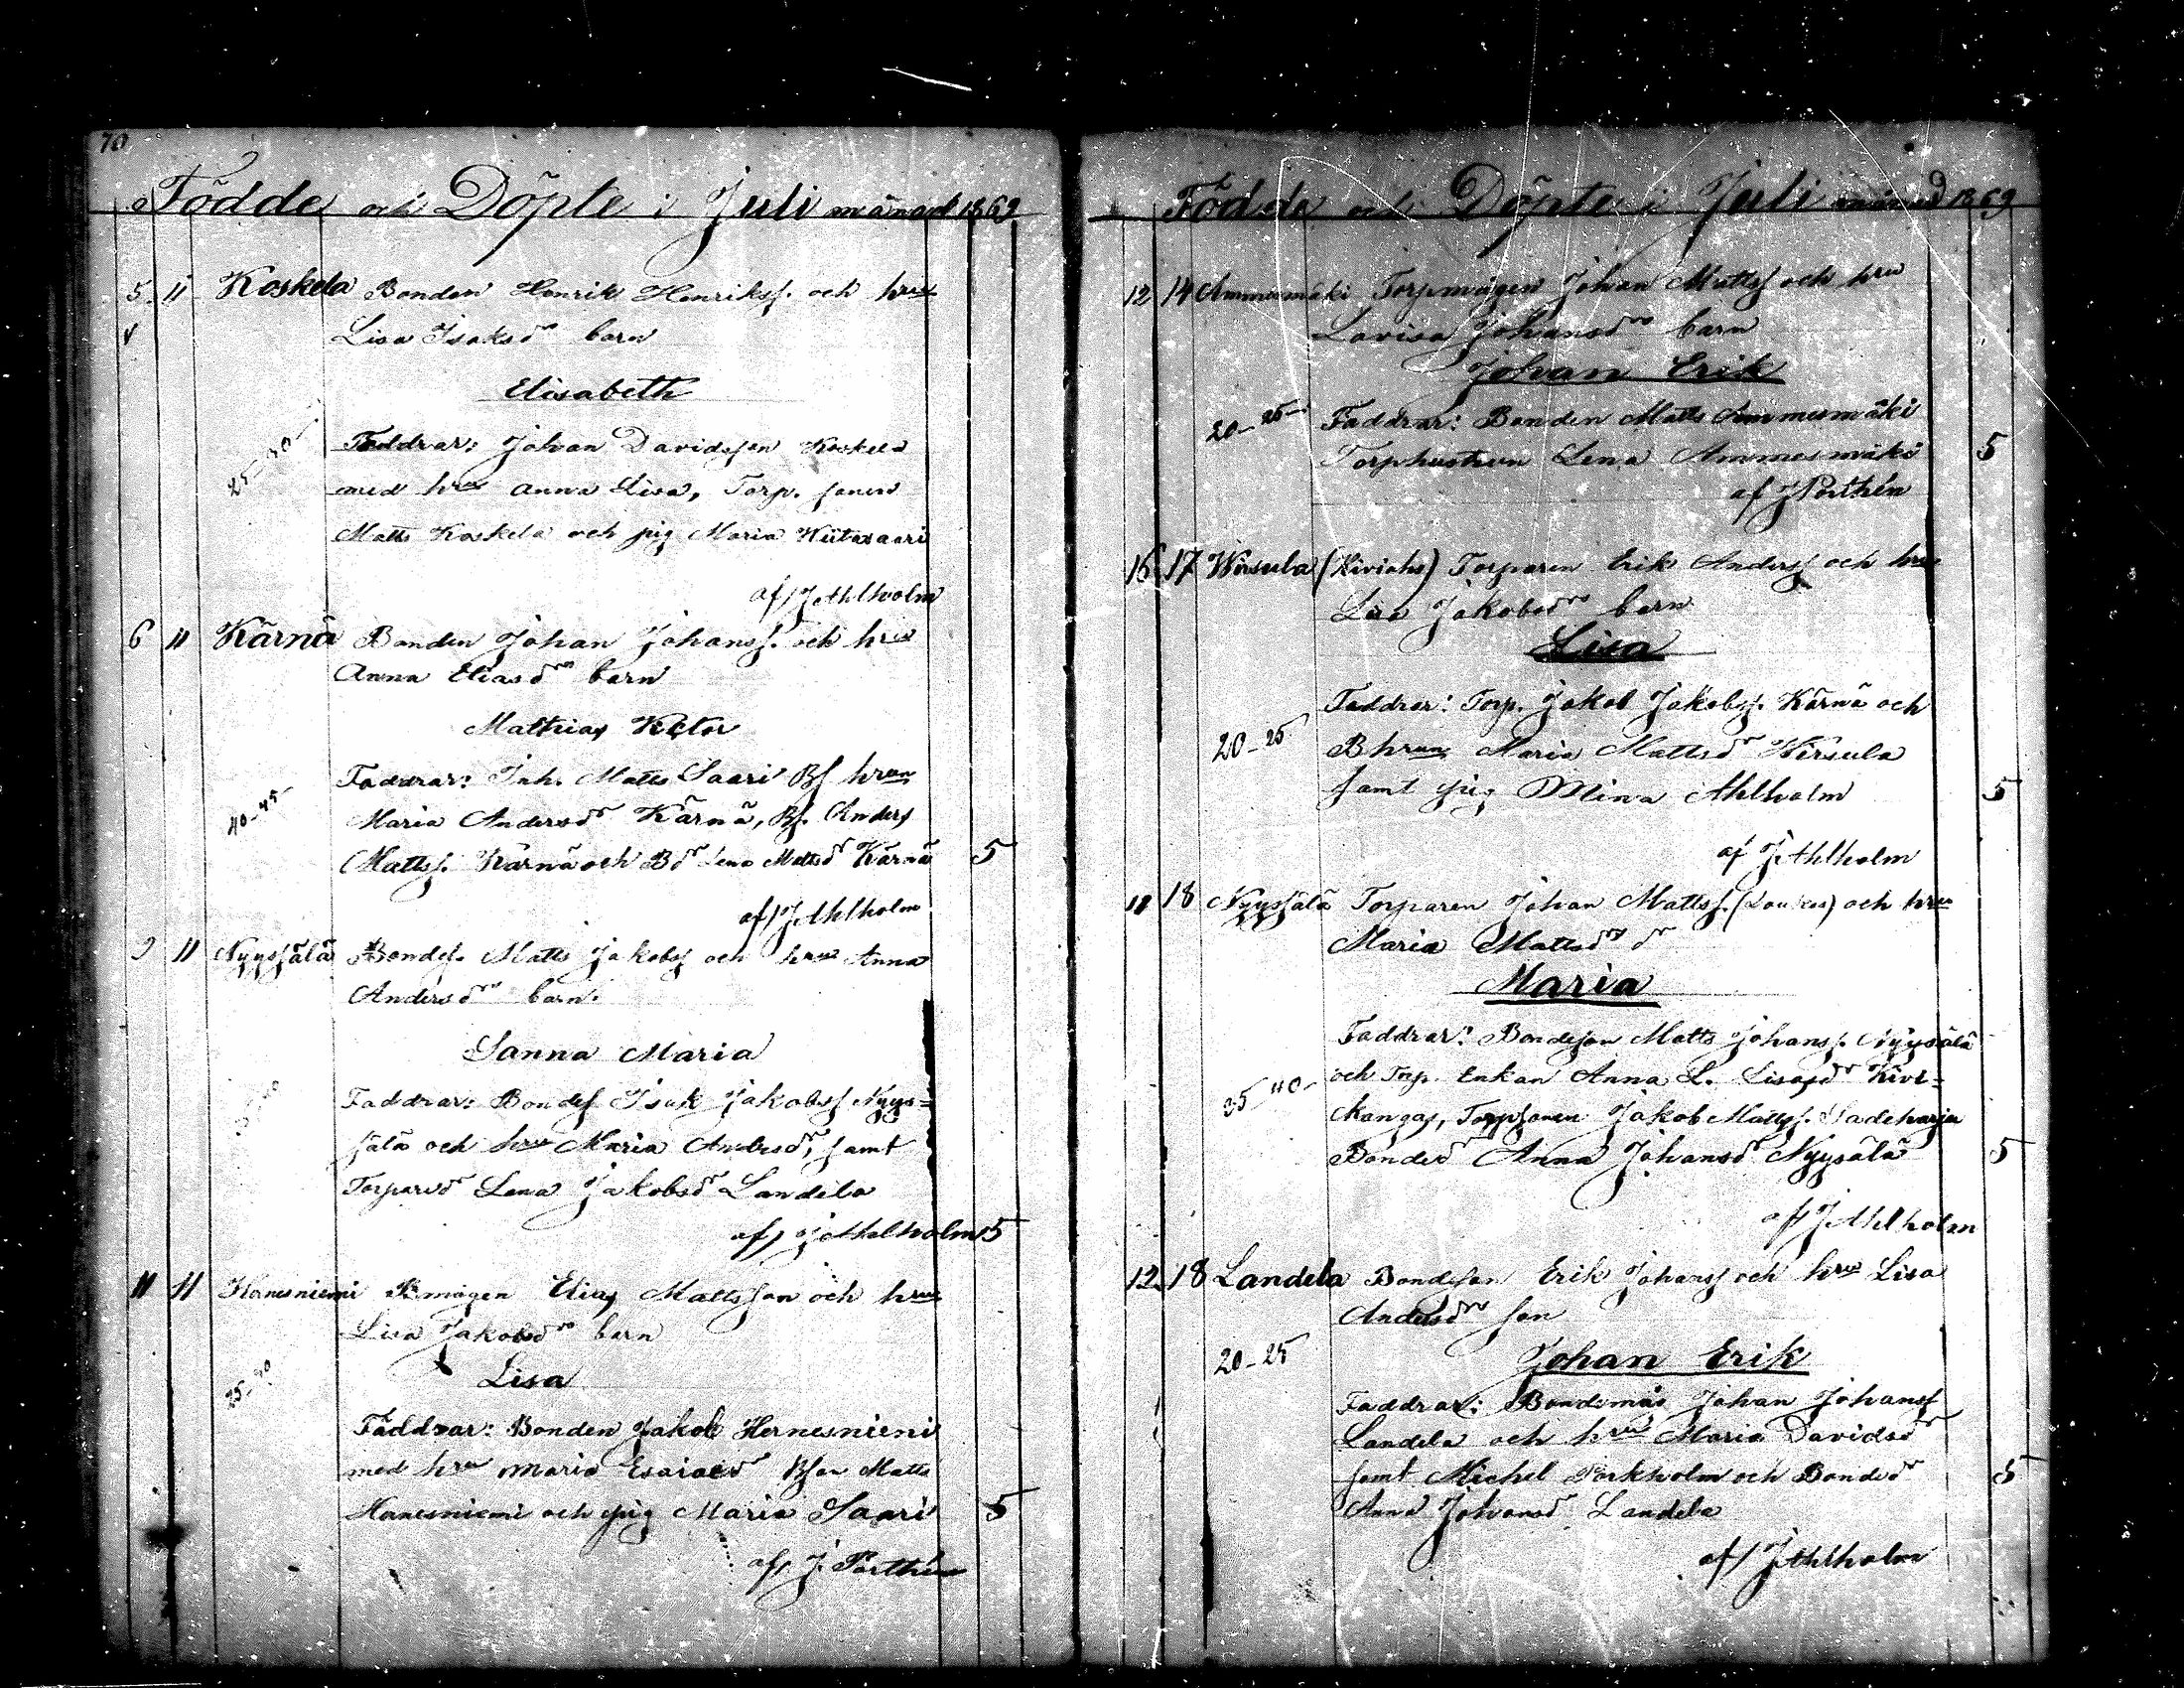 70
Födde och Döpte i Juli månad 1869
5 11 Koskela Bonden Henrik Henrikss. och hru
Lisa Isaksdrs barn
Elisabeth
25-30
Faddrar: Johan Davidsson Koskela
med hru Anna Lisa, Torp. sonen
Matts Koskela och pig Maria Wiitasaari
af J Ahlholm
6 11 Kärnä Bonden Johan Johanss. och hru
Anna Eliasdrs barn
Mathias Victor
Faddrar: Inh. Matts Saari Bs hrun
40-45
Maria Andersdr Kärnä, Bs. Anders
Mattss. Kärnä och Bdr Lena Mattsdr Kärnä 5
af J. Ahlholm
9 11 Nyyssälä Bondes. Matts Jakobss och hru Anna
Andersdrs barn.
Sanna Maria
Faddrar: Bondes Isak Jakobss Nyys=
sälä och hru Maria Andersdr, samt
Torparedr Lena Jakobsdr Landela
af J Ahlholm 5
11 11 Hernesniemi Bmågen Elias Mattsson och hru
Lisa Jakobsdrs barn
Lisa
25-30
Faddrar: Bonden Jakob Hernesniemi
med hru Maria Esaiaedr Bson Matts
Hernesniemi och pig Maria Saari 5
af J. Porthén
Födde och Döpte i Juli månad 1869
12 14 Ammesmäki Torpmågen Johan Mattss och hru
Lovisa Johansdrs barn
Johan Erik
20-25
Faddrar: Bonden Matts Ammesmäki
Torphustrun Lena Ammesmäki 5
af J Porthén
16 17 Wirsula (Kiviahs) Torparen Erik Anderss och hru
Lisa Jakobsdrs barn
Lisa
Faddrar: Torp. Jakob Jakobss. Kärnä och
20-25
B hrun Maria Mattsdr Wirsula
samt pig Mina Ahlholm 5
af J. Ahlholm
18 Nyyssälä Torparen Johan Mattss. (Loukas) och hru
Maria Mattsdrs dr
Maria
Faddrar: Bondeson Matts Johanss. Nyysälä
och Torp. Enkan Anna L. Kivi=
35-40
kangas, Torpsonen Jakob Mattss. Sadeharju
Bondedr Anna Johansdr Nyysälä 5
af J Ahlholm
12 18 Landela Bondeson Erik Johanss och hru Lisa
Andersdrs son
20-25
Johan Erik
Faddrar: Bondemåg Johan Johanss
Landela och hru Maria Davidsdr
samt Michel Porkholm och Bondedr 5
Anna Johansdr Landela
af J Ahlholm